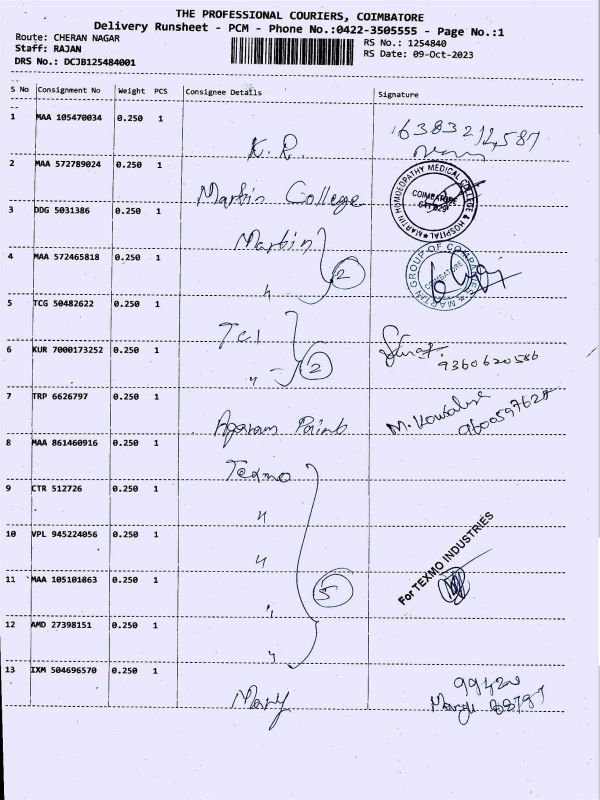 THE PROFESSIONAL COURIERS, COIMBATORE
Delivery Runsheet - PCM - Phone No.:0422-3505555 - Page No.:1
Route: CHERAN NAGAR RS No.: 1254840
Staff: RAJAN RS Date: 09-Oct-2023
DRS No.: DCJB125484001
S No Consignment No Weight PCS Consignee Details Signature
1 MAA 105470034 0.250 1
K.R. 6383214587
2 MAA 572789024 0.250 1
Martin College MARTIN HOMOEOPATHY MEDICAL COLLEGE & HOSPITAL COIMBATORE
3 DDG 5031386 0.250 1
Martin
4 MAA 572465818 0.250 1
〃 2 MARTIN GROUP OF COMPANIES COIMBATORE
5 TCG 50482622 0.250 1
TCI
6 KUR 7000173252 0.250 1
〃 2 9360620586
7 TRP 6626797 0.250 1
Agaram Paints M. Kowsalya
8 MAA 861460916 0.250 1
Texmo
9 CTR 512726 0.250 1
〃
10 VPL 945224056 0.250 1
〃
11 MAA 105101863 0.250 1
〃 5 For TEXMO INDUSTRIES
12 AMD 27398151 0.250 1
〃
13 IXM 504696570 0.250 1
99420